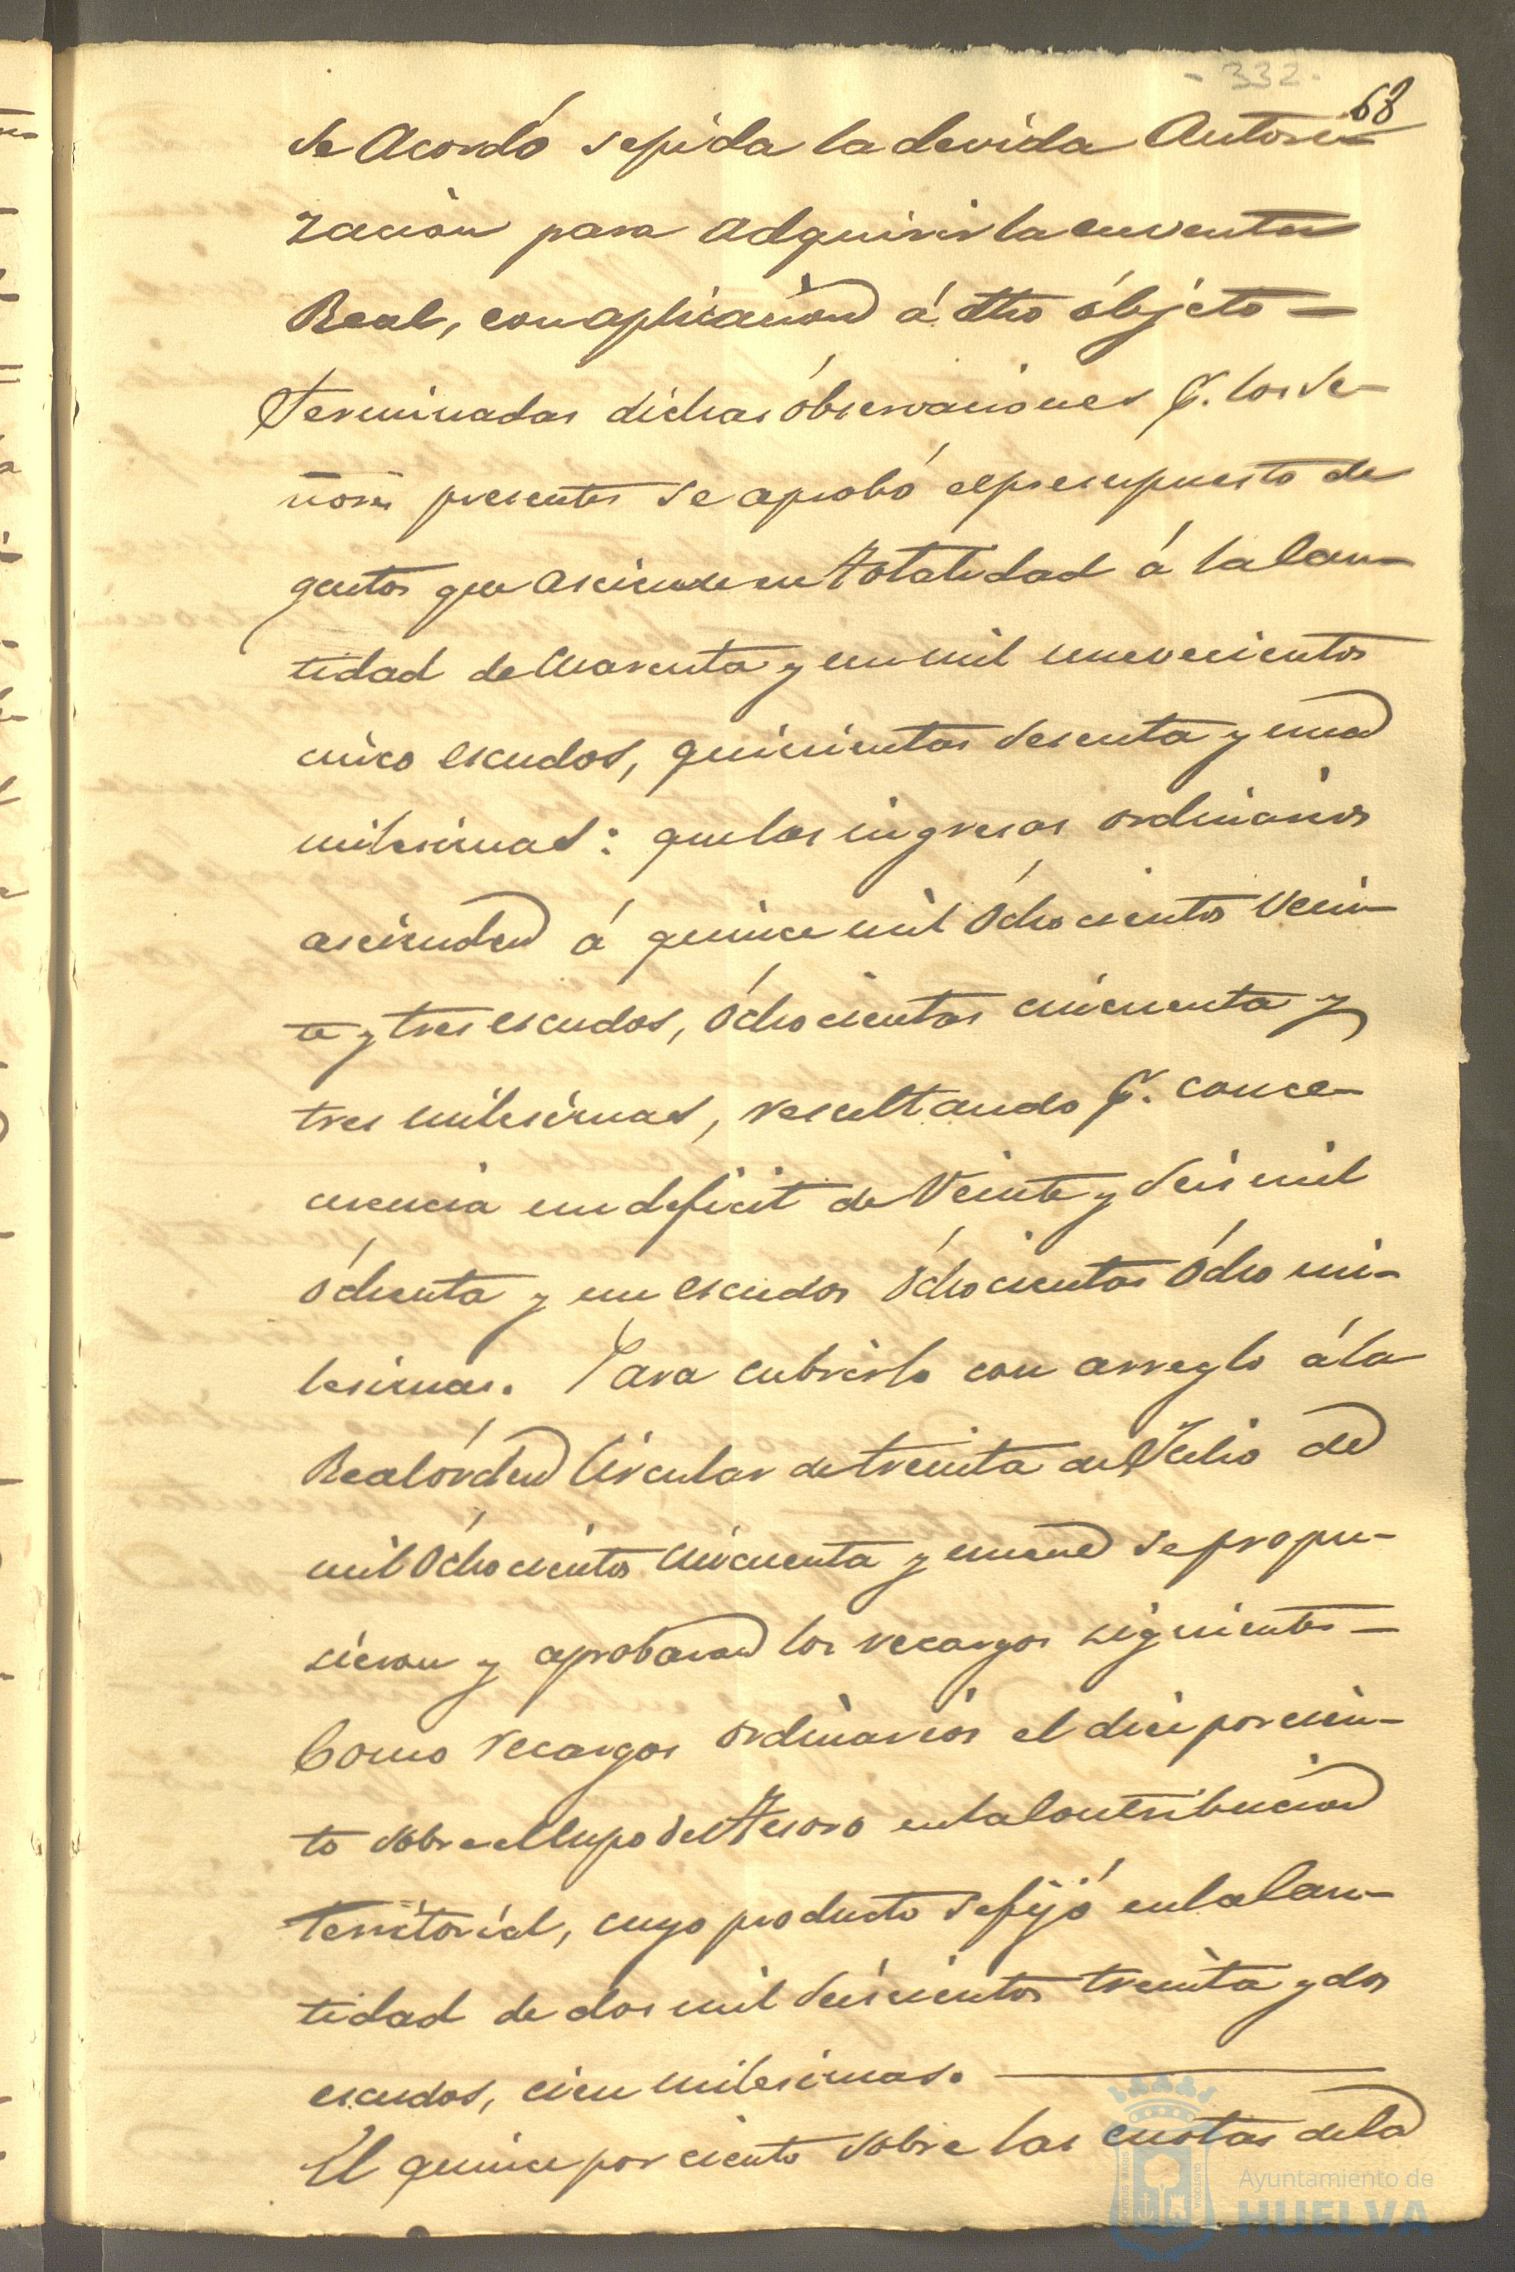 - 332 -
68
se Acordó se pida la devida Autori-
zacion para adquirir la en venta
Real, con aplicacion á dho óbjeto —
Terminadas dichas óbservaciones p.r los Se-
ñores presentes se aprobó el presupuesto de
gastos que asciende en totalidad á la Can-
tidad de Cuarenta y un mil nuevecientos
cinco escudos, quinientas sesenta y una
milesimas: que los ingresos ordinarios
ascienden á quince mil óchocientos vein-
te y tres escudos, óchocientas cincuenta y
tres milesimas, resultando p.r conce-
cuencia un deficit de Veinte y Seis mil
óchenta y un escudos óchocientas ócho mi-
lesimas. Para cubrirlo con arreglo á la
Real órden Circular de treinta de Julio de
mil óchocientos Cincuenta y nueve se propu-
sieron y aprobaron los recargos siguientes —
Como recargos ordinarios el diez por cien-
to sobre el Cupo del Tesoro en la Contribucion
territorial, cuyo producto se fijó en la Can-
tidad de dos mil Seiscientos treinta y dos
escudos, cien milesimas. —
El quince por ciento sobre las cuotas de la
Ayuntamiento de
HUELVA